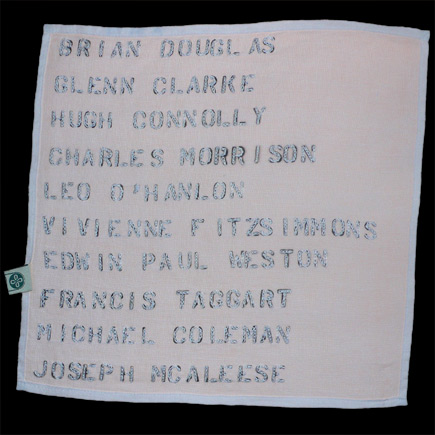 BRIAN DOUGLAS
GLENN CLARKE
HUGH CONNOLLY
CHARLES MORRISON
LEO O'HANLON
VIVIENNE FITZSIMMONS
EDWIN PAUL WESTON
FRANCIS TAGGART
MICHAEL COLEMAN
JOSEPH MCALEESE